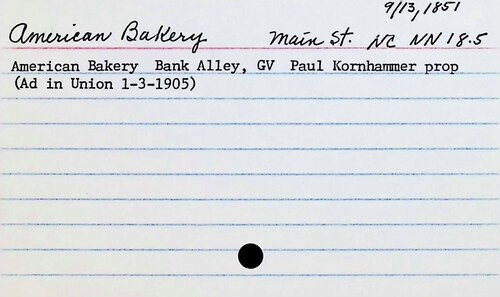 9/13, 1851
American Bakery Main St. NC NN 18.5
American Bakery Bank Alley, GV Paul Kornhammer prop
(Ad in Union 1-3-1905)